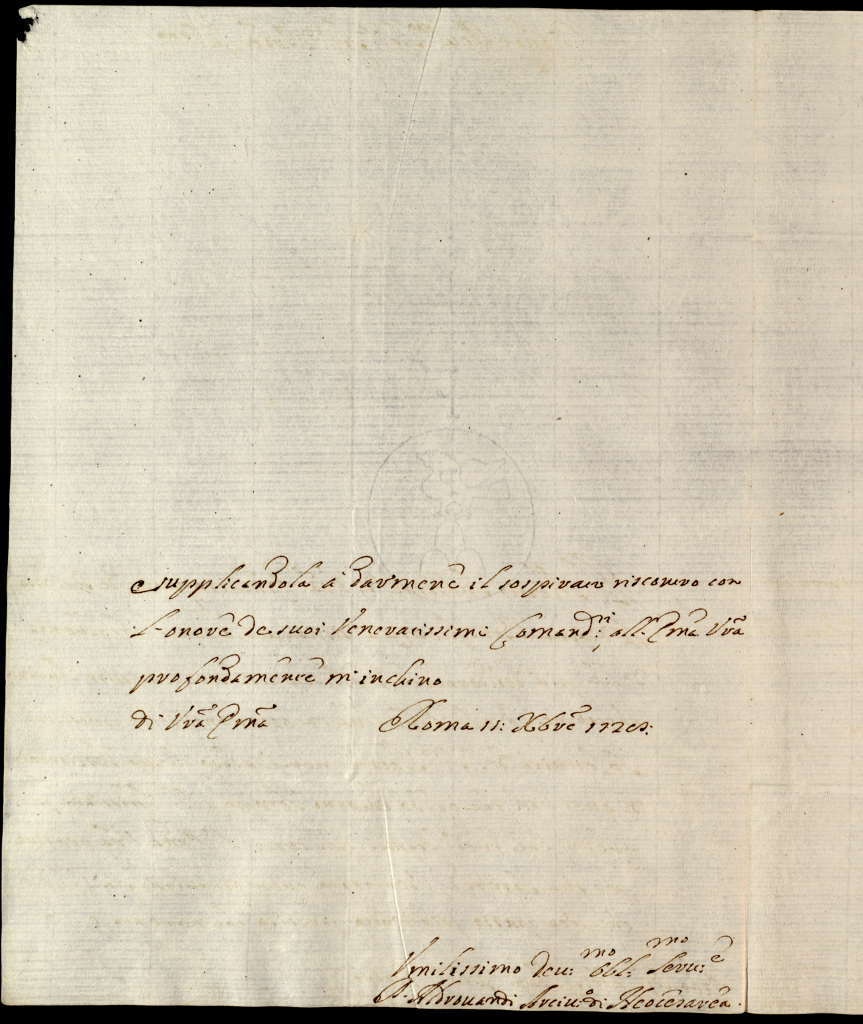 supplicandola à darmene il sospirato riscontro con
l'onore de suoi Veneratissimi Comand:ri all' Em̃a Vr̃a
profondamente m'inchino
di Vr̃a Em̃a Roma 11: Xbre
Vmilissimo Deu:mo obl:mo Seru:e
P. Aldrouandi Arciu:o di Neocesarea.